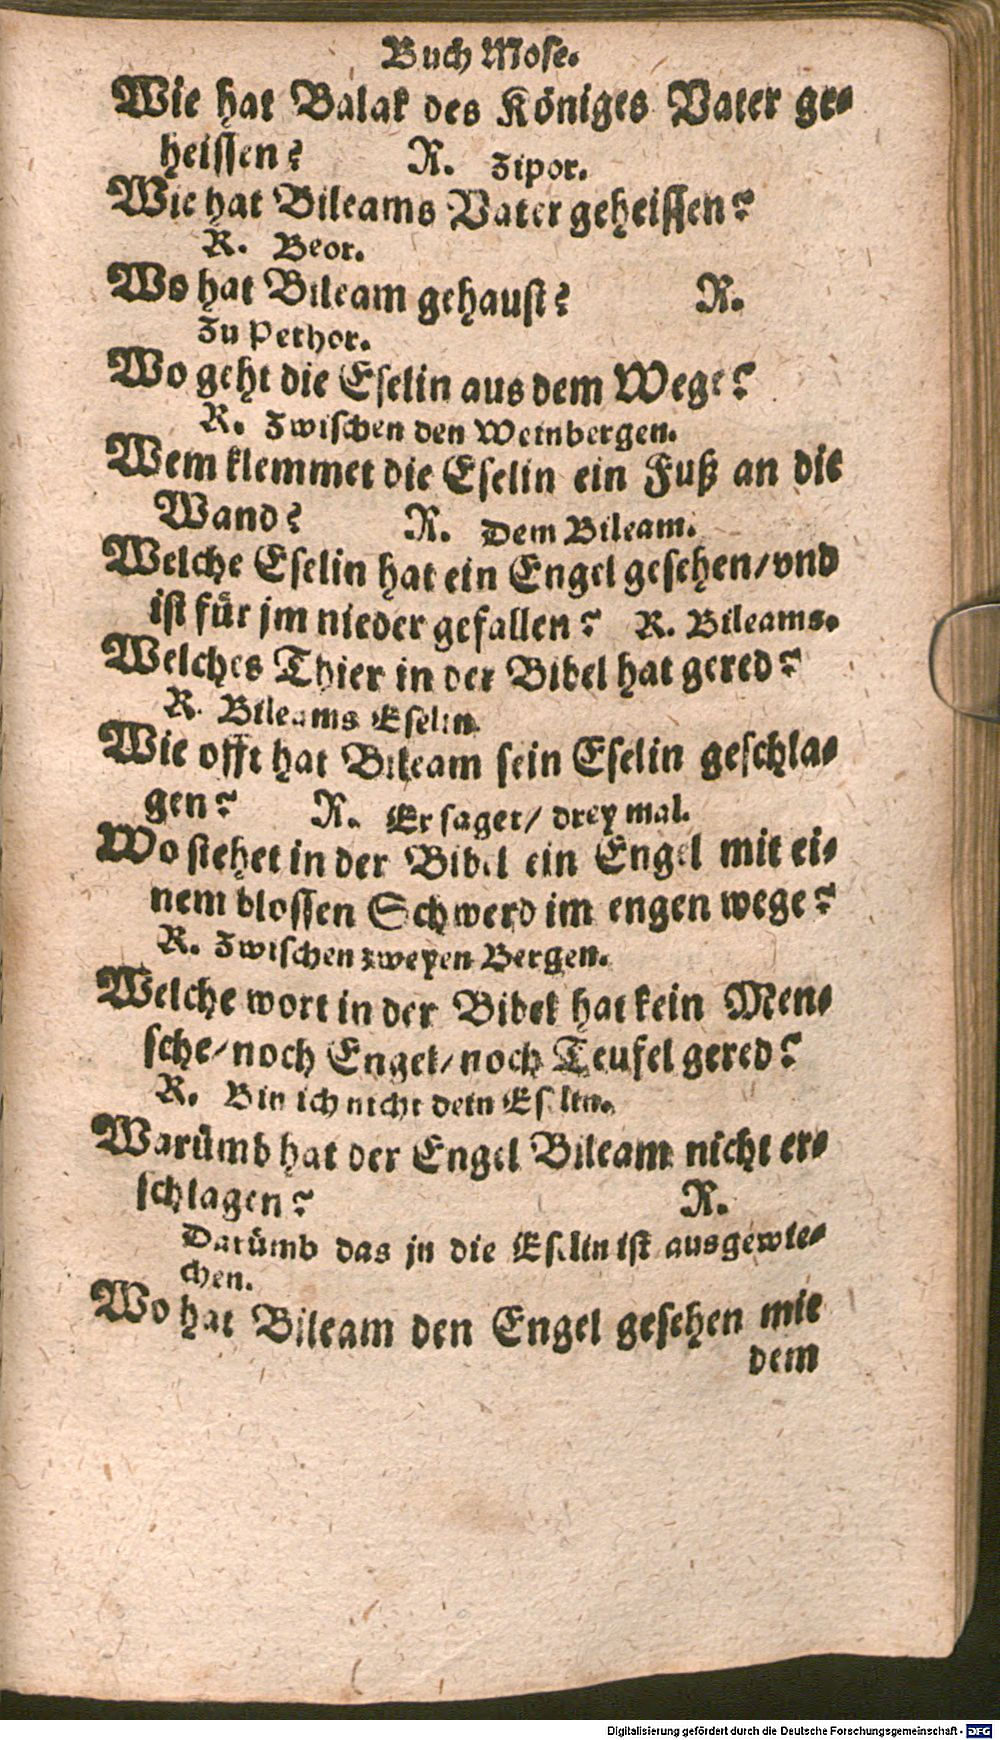 Buch Mose.
Wie hat Balak des Königes Vater ge-
heissen? R. Zipor.
Wie hat Bileams Vater geheissen?
R. Beor.
Wo hat Bileam gehaust? R.
Zu Pethor.
Wo geht die Eselin aus dem Wege?
R. Zwischen den Weinbergen.
Wem klemmet die Eselin ein Fuß an die
Wand? R. Dem Bileam.
Welche Eselin hat ein Engel gesehen/vnd
ist für jm nieder gefallen? R. Bileams.
Welches Thier in der Bibel hat gered?
R. Bileams Eselin.
Wie offt hat Bileam sein Eselin geschla-
gen? R. Er saget/ drey mal.
Wo stehet in der Bibel ein Engel mit ei-
nem blossen Schwerd im engen wege?
R. Zwischen zweyen Bergen.
Welche wort in der Bibel hat kein Men-
sche/noch Engel/noch Teufel gered?
R. Bin ich nicht dein Eselin.
Warümb hat der Engel Bileam nicht er-
schlagen? R.
Darümb das jn die Eselin ist ausgewie-
chen.
Wo hat Bileam den Engel gesehen mit
dem
Digitalisierung gefördert durch die Deutsche Forschungsgemeinschaft - DFG